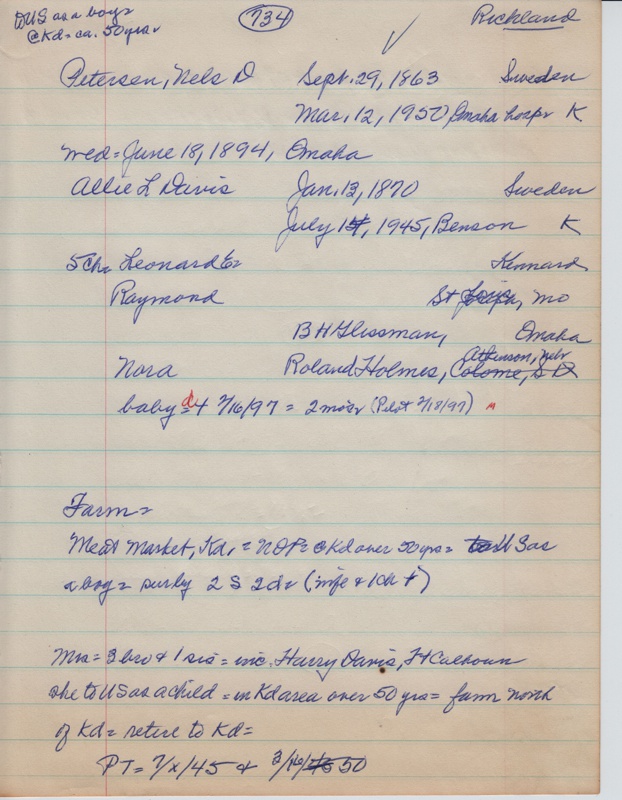 to US as a boy=
@ Kd= ca. 50 yrs.
734
Richland
Petersen, Nels D Sept. 29, 1863 Sweden
Mar. 12, 1950, Omaha hosp. K
wed= June 18, 1894, Omaha
Allie L Davis Jan. 13, 1870 Sweden
July 1, 1945, Benson K
5 ch= Leonard E= Kennard
Raymond St Joseph, Mo
B H Glissman, Omaha
Atkinson, Nebr
Nora Roland Holmes, Colome, S D
baby= d 7/16/97 = 2 mos. (Pilot 7/18/97)
Farm=
Meat Market, Kd. = @ Kd over 50 yrs= to US as
a boy= surv by 2 S 2 d= (wife & 1 ch +)
Mrs= 3 bro & 1 sis= inc. Harry Davis, Ft Calhoun
she to US as a child= in Kd area over 50 yrs= farm north
of Kd= retire to Kd=
PT= 7/x/45 & 3/16/50